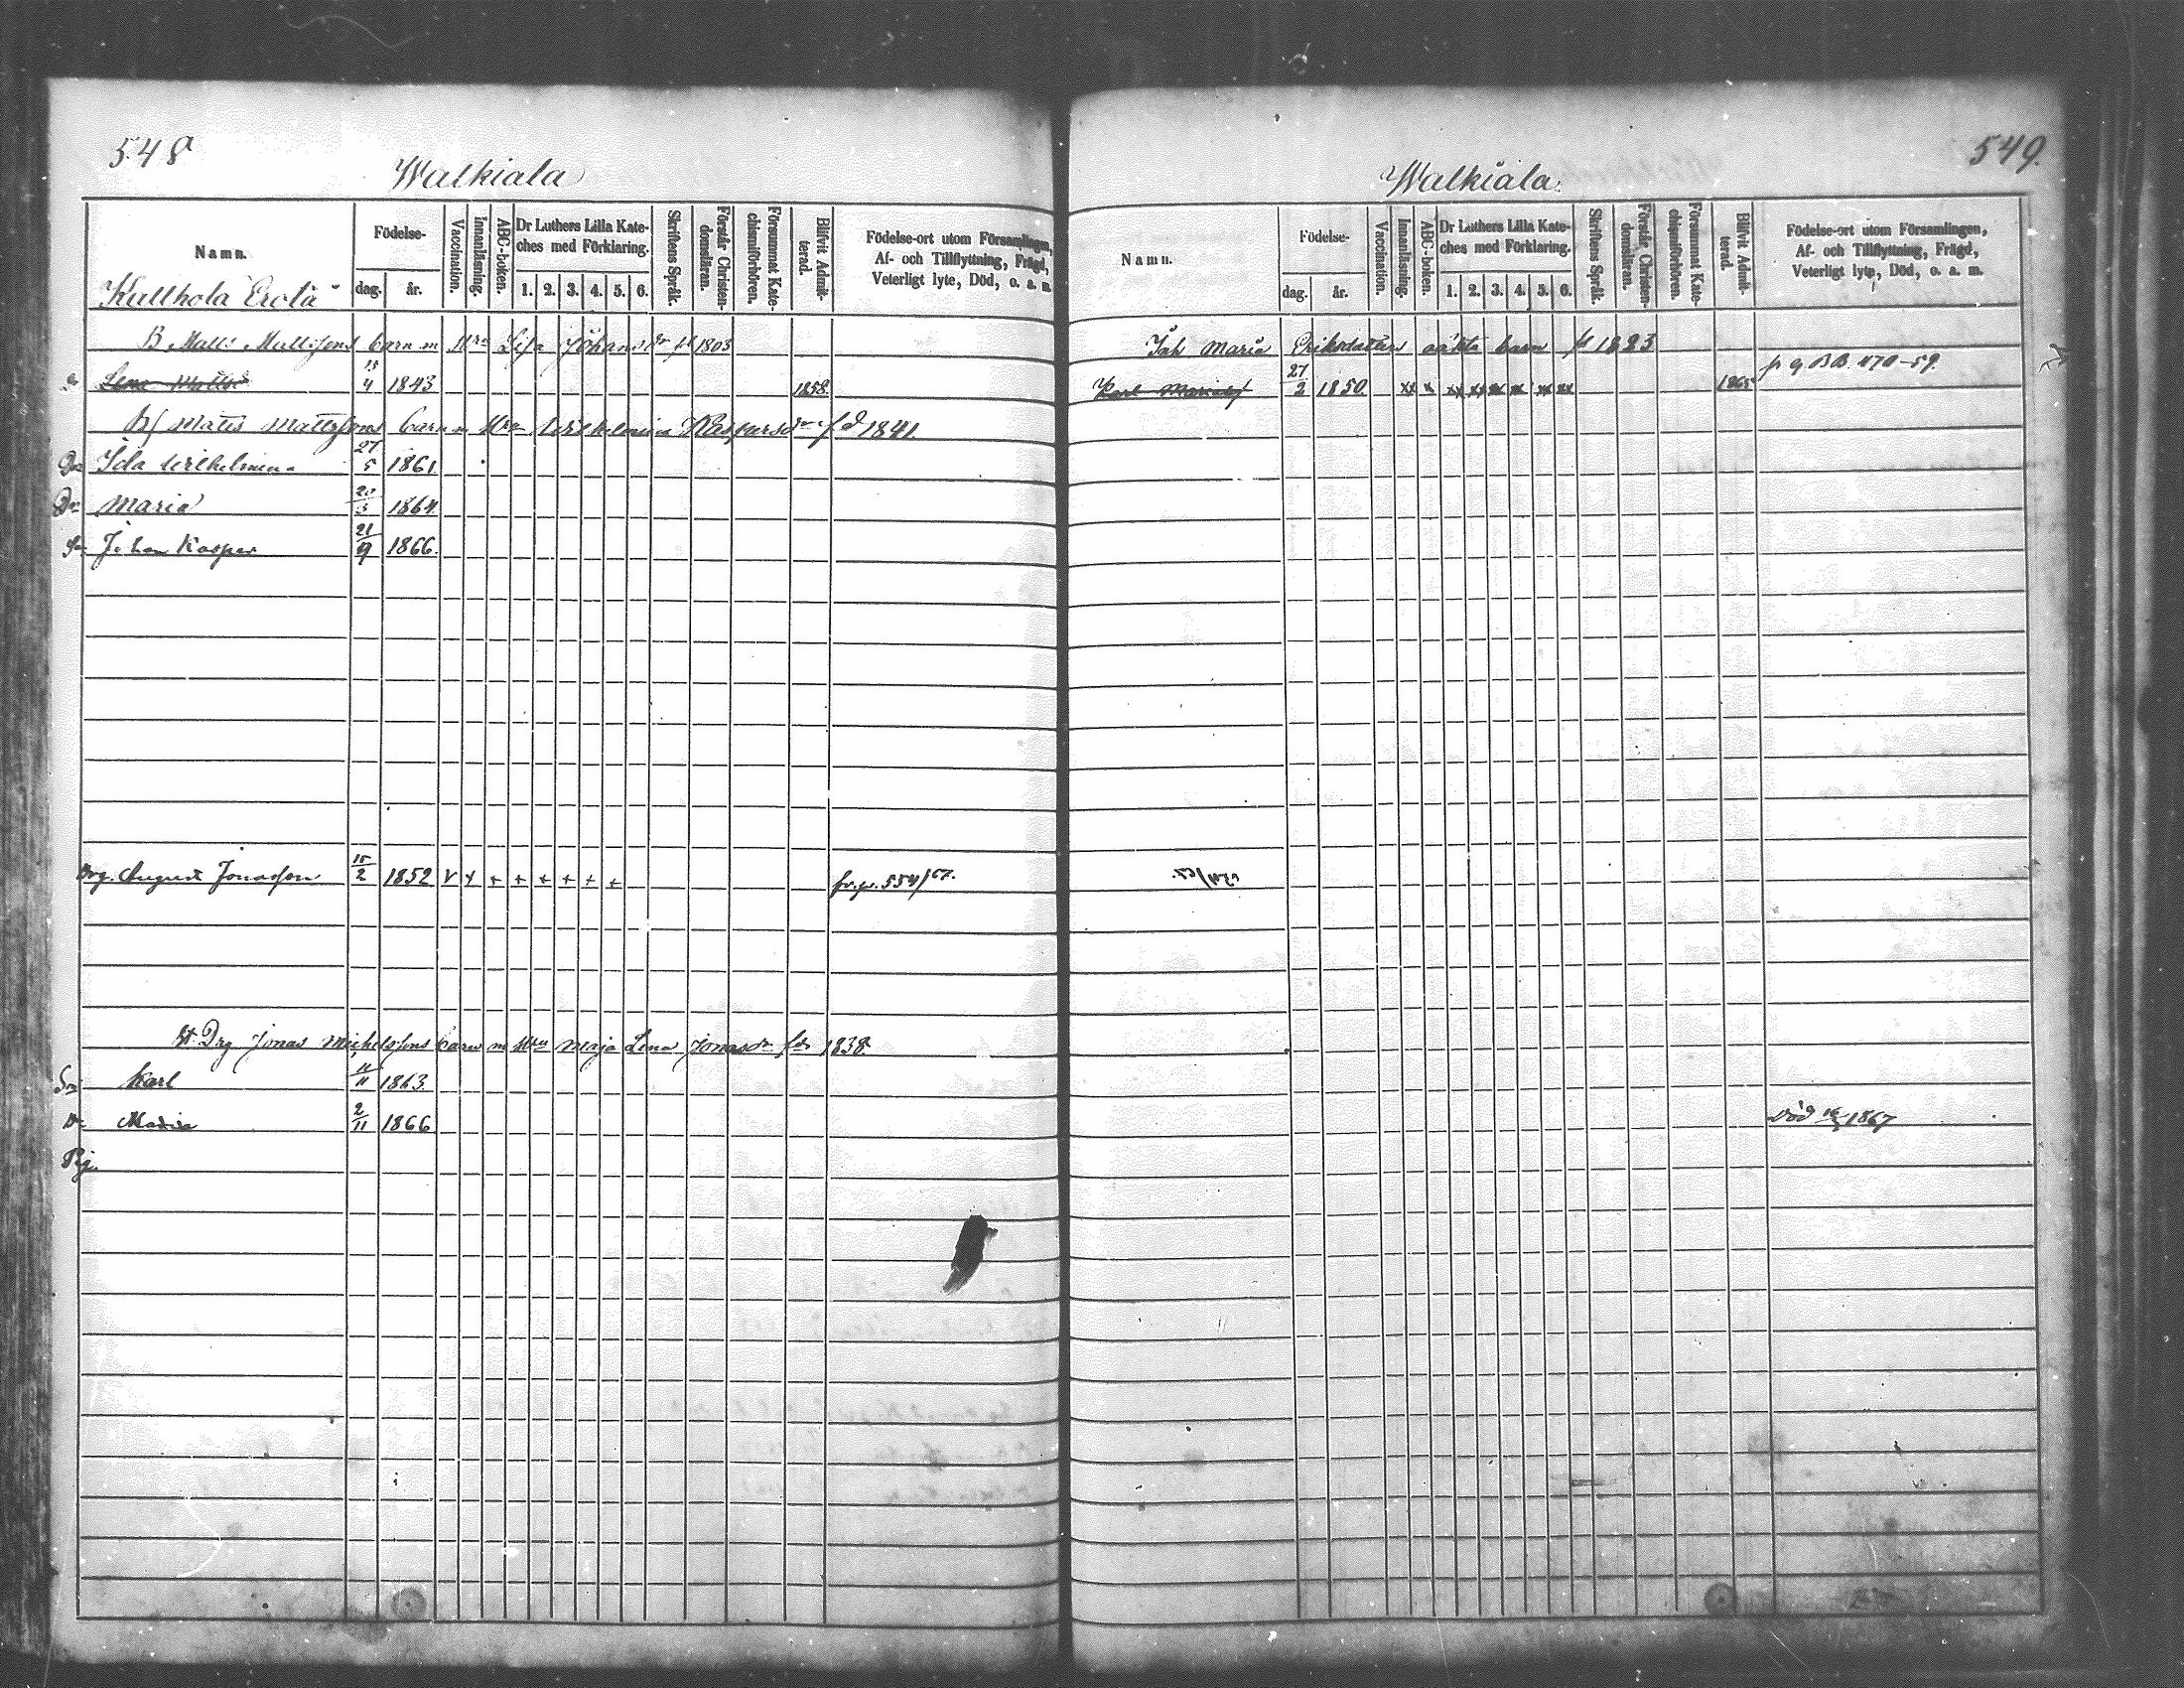 548
Walkiala
Namn.
Födelse-
dag.
år.
Vaccination.
Innanläsning.
ABC-boken.
Dr Luthers Lilla Kate-
ches med Förklaring.
1. 2. 3. 4. 5. 6.
Skriftens Språk.
Förstår Christen-
domsläran.
Försummat Kate-
chismiförhören.
Blifvit Admit-
terad.
Födelse-ort utom Församlingen,
Af- och Tillflyttning, Frägd,
Veterligt lyte, Död, o. a. m.
Kallhola Erola
B Matts Mattssons barn m Hru Lisa Johansdr fd 1803
Lena Mattsd 15/4 1843 1858.
Bf Matts Mattssons barn m Hru Wilhelmina Kaspersdr fd 1841.
Dr Ida Wilhelmina 27/5 1861.
Dr Maria 20/3 1864.
Sn Johan Kasper 21/9 1866.
Drg. August Jonasson 15/2 1852 v + + + + + + + fr. p. 554/67.
Drg Jonas Michelssons barn m Hru Maja Lena Jonasdr fd 1838.
Sn Karl 11/11 1863.
Dr Maria 2/11 1866
549.
Walkiala.
Namn.
Födelse-
dag.
år.
Vaccination.
Innanläsning.
ABC-boken.
Dr Luthers Lilla Kate-
ches med Förklaring.
1. 2. 3. 4. 5. 6.
Skriftens Språk.
Förstår Christen-
domsläran.
Försummat Kate-
chismiförhören.
Blifvit Admit-
terad.
Födelse-ort utom Församlingen,
Af- och Tillflyttning, Frägd,
Veterligt lyte, Död, o. a. m.
Inh Maria Eriksdotters oäkta barn fd 1823
Karl Mariasf 27/2 1850. 1865
Död 1867